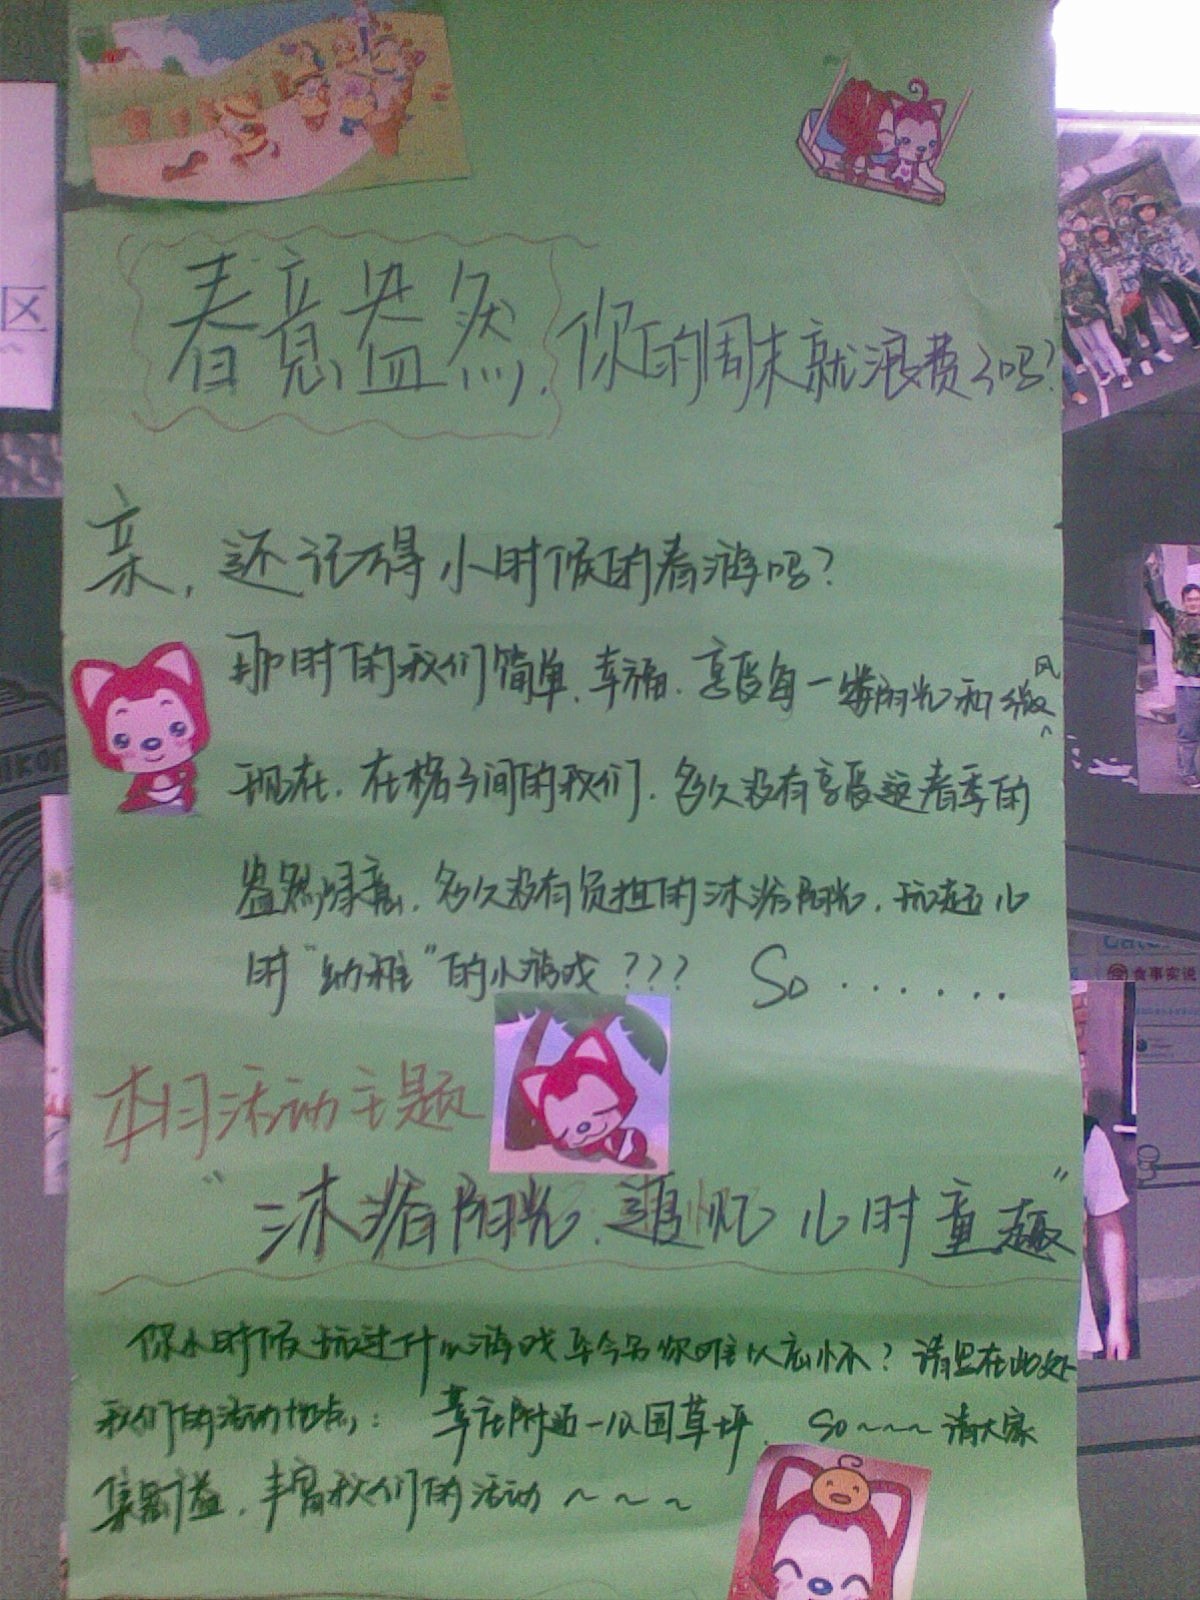 春意盎然,你的周末就浪费了吗?
亲,还记得小时候的春游吗?
那时的我们简单、幸福、享受每一缕阳光和微风
现在,在格子间的我们,多久没有享受过春季的
盎然绿意,多久没有负担的沐浴阳光,玩起儿
时“幼稚”的小游戏??? So······
本月活动主题
“沐浴阳光、追忆儿时童趣”
你小时候玩过什么游戏至今另你难以忘怀?请写在此处
我们的活动地点: 社附近一公园草坪, So~~~请大家
集思广益,丰富我们的活动~~~
区
食事实说